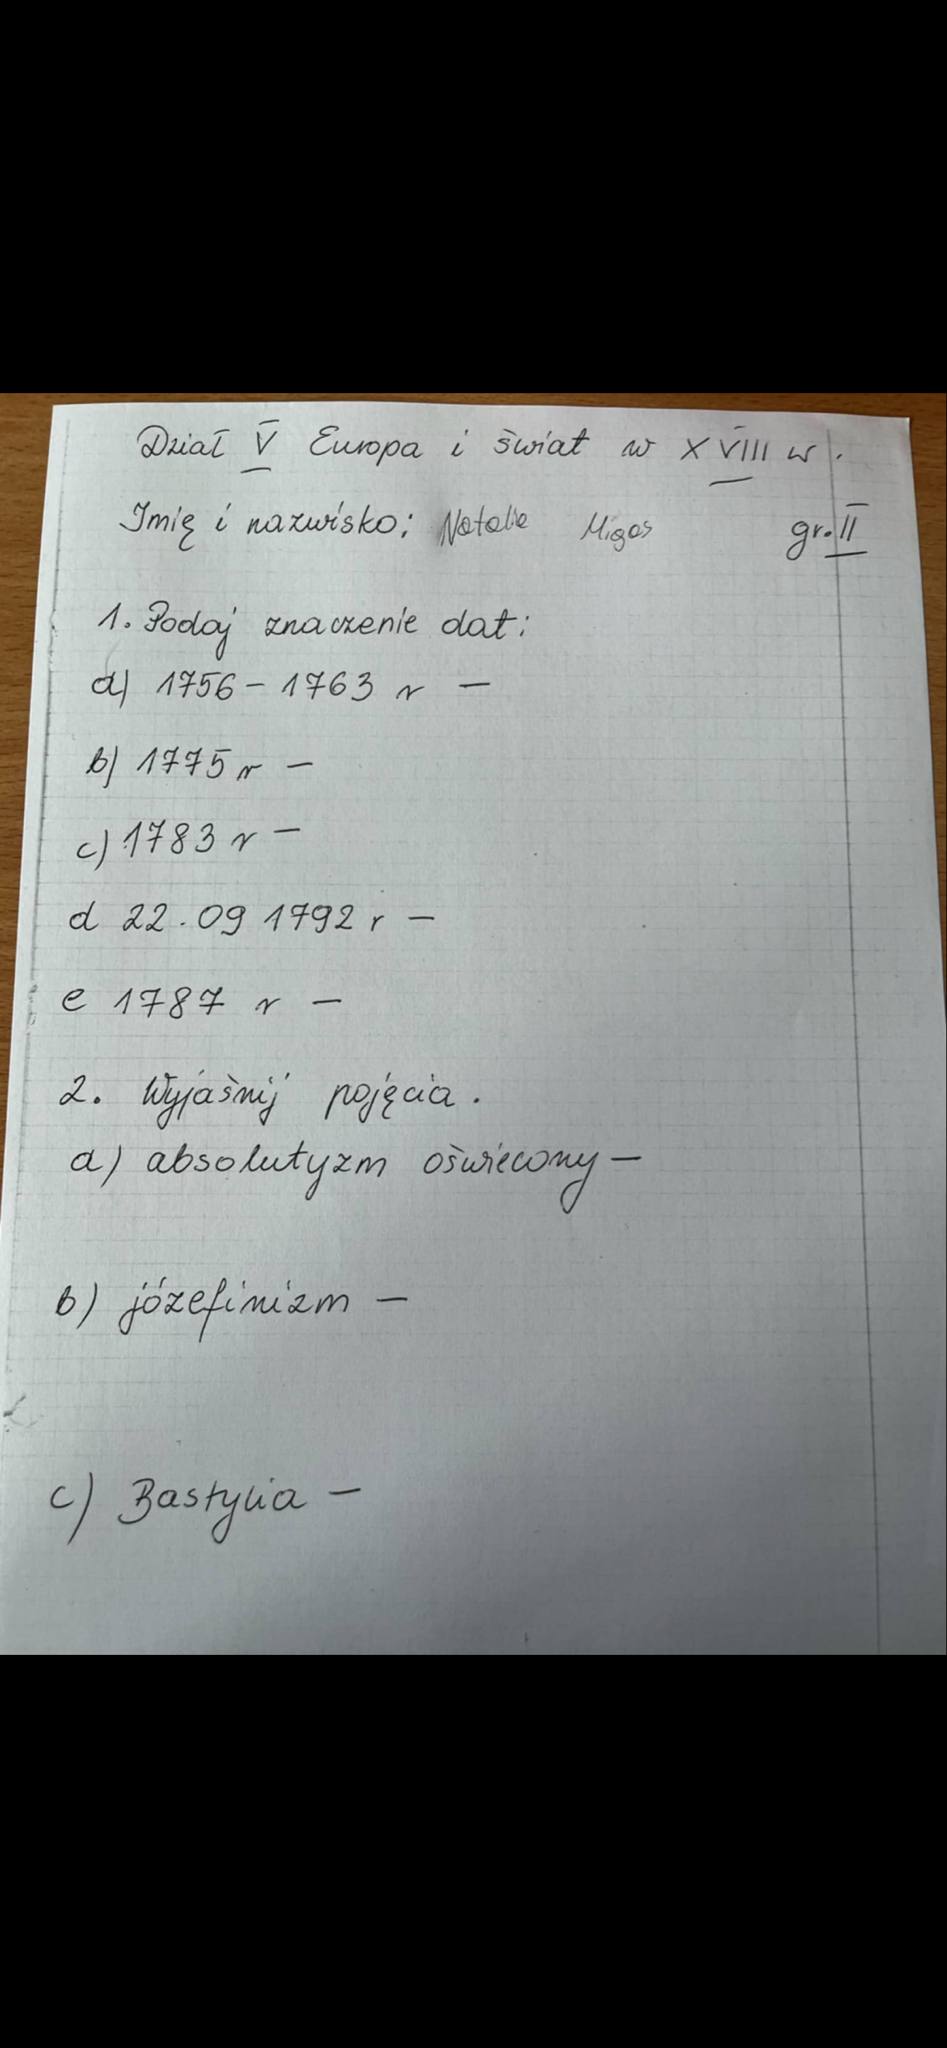 Dział V Europa i świat w XVIII w.
Imię i nazwisko: Natalie Migas gr. II
1. Podaj znaczenie dat:
a) 1756 - 1763 r -
b) 1775 r -
c) 1783 r -
d 22.09 1792 r -
e 1787 r -
2. Wyjaśnij pojęcia.
a) absolutyzm oświecony -
b) józefinizm -
c) Bastylia -